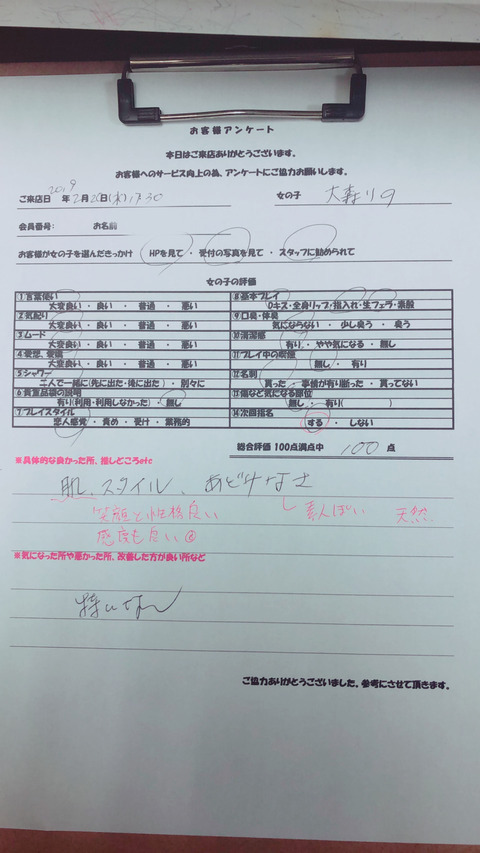 お客様アンケート
本日はご来店ありがとうございます。
お客様へのサービス向上の為、アンケートにご協力お願いします。
ご来店日 2019年2月20日(水)17:30 女の子 大森りの
会員番号: お名前
お客様が女の子を選んだきっかけ HPを見て・受付の写真を見て・スタッフに勧められて
女の子の評価
1 言葉使い
大変良い・良い・普通・悪い
2 気配り
大変良い・良い・普通・悪い
3 ムード
大変良い・良い・普通・悪い
4 愛想、愛嬌
大変良い・良い・普通・悪い
5 シャワー
二人で一緒に(先に出た・後に出た)・別々に
6 貴重品袋の説明
有り(利用・利用しなかった)・無し
7 プレイスタイル
恋人感覚・責め・受け・業務的
8 基本プレイ
Dキス・全身リップ・指入れ・生フェラ・素股
9 口臭・体臭
気にならない・少し臭う・臭う
10 清潔感
有り・やや気になる・無し
11 プレイ中の喫煙
無し・有り
12 名刺
貰った・事情が有り断った・貰ってない
13 傷など気になる部位
無し・有り( )
14 次回指名
する・しない
総合評価 100点満点中 100 点
※具体的な良かった所、推しどころetc
肌、スタイル、あどけなさ
笑顔と性格良い 素人ぽい 天然
感度も良い
※気になった所や悪かった所、改善した方が良い所など
特になし
ご協力ありがとうございました。参考にさせて頂きます。